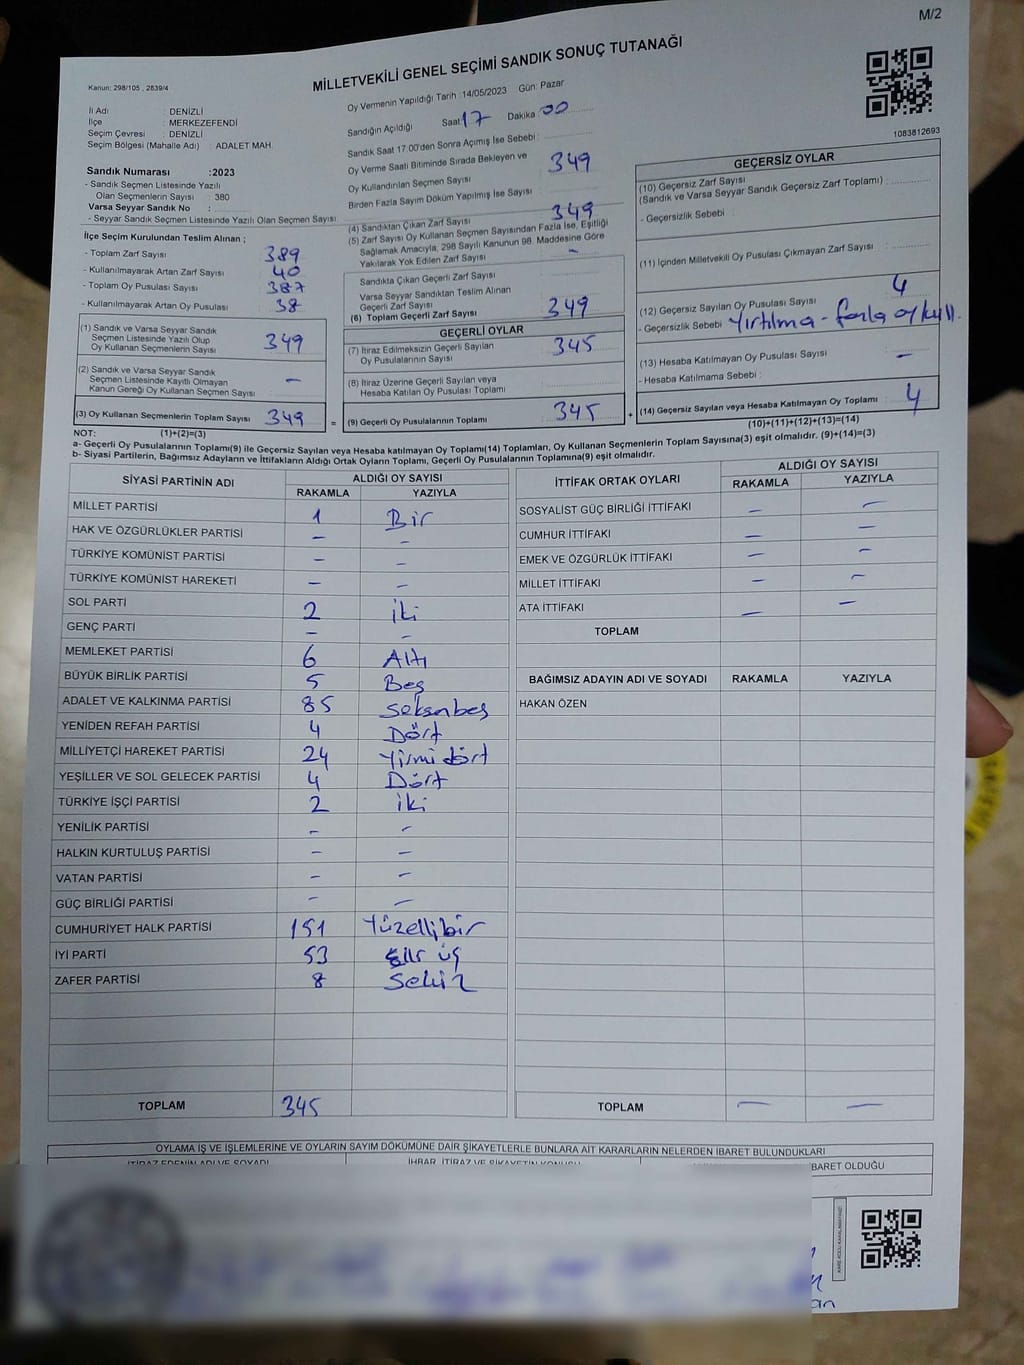 M/2
MİLLETVEKİLİ GENEL SEÇİMİ SANDIK SONUÇ TUTANAĞI
Kanun: 298/105 , 2839/4
İl Adı : DENİZLİ
İlçe : MERKEZEFENDİ
Seçim Çevresi : DENİZLİ
Seçim Bölgesi (Mahalle Adı) : ADALET MAH.
Sandık Numarası :2023
- Sandık Seçmen Listesinde Yazılı
Olan Seçmenlerin Sayısı : 380
Varsa Seyyar Sandık No :
- Seyyar Sandık Seçmen Listesinde Yazılı Olan Seçmen Sayısı
İlçe Seçim Kurulundan Teslim Alınan ;
- Toplam Zarf Sayısı 389
- Kullanılmayarak Artan Zarf Sayısı 40
- Toplam Oy Pusulası 387
- Kullanılmayarak Artan Oy Pusulası 38
(1) Sandık ve Varsa Seyyar Sandık
Seçmen Listesinde Yazılı Olup
Oy Kullanan Seçmenlerin Sayısı 349
(2) Sandık ve Varsa Seyyar Sandık
Seçmen Listesinde Kayıtlı Olmayan
Kanun Gereği Oy Kullanan Seçmen Sayısı –
(3) Oy Kullanan Seçmenlerin Toplam Sayısı 349 =
Oy Vermenin Yapıldığı Tarih :14/05/2023 Gün: Pazar
Sandığın Açıldığı Saat 17 Dakika 00
Sandık Saat 17.00'den Sonra Açımış İse Sebebi :
Oy Verme Saati Bitiminde Sırada Bekleyen ve
Oy Kullandırılan Seçmen Sayısı 349
Birden Fazla Sayım Döküm Yapılmış İse Sayısı :
(4) Sandıktan Çıkan Zarf Sayısı 349
(5) Zarf Sayısı Oy Kullanan Seçmen Sayısından Fazla İse, Eşitliği
Sağlamak Amacıyla, 298 Sayılı Kanunun 98. Maddesine Göre
Yakılarak Yok Edilen Zarf Sayısı –
Sandıkta Çıkan Geçerli Zarf Sayısı
Varsa Seyyar Sandıktan Teslim Alınan
Geçerli Zarf Sayısı
(6) Toplam Geçerli Zarf Sayısı 349
GEÇERLİ OYLAR
(7) İtiraz Edilmeksizin Geçerli Sayılan
Oy Pusulalarının Sayısı 345
(8) İtiraz Üzerine Geçerli Sayılan veya
Hesaba Katılan Oy Pusulası Toplamı
(9) Geçerli Oy Pusulalarının Toplamı 345 +
1083812693
GEÇERSİZ OYLAR
(10) Geçersiz Zarf Sayısı
(Sandık ve Varsa Seyyar Sandık Geçersiz Zarf Toplamı) :
- Geçersizlik Sebebi :
(11) İçinden Milletvekili Oy Pusulası Çıkmayan Zarf Sayısı
(12) Geçersiz Sayılan Oy Pusulası Sayısı 4
- Geçersizlik Sebebi Yırtılma - fazla oy kull.
(13) Hesaba Katılmayan Oy Pusulası Sayısı –
- Hesaba Katılmama Sebebi :
(14) Geçersiz Sayılan veya Hesaba Katılmayan Oy Toplamı 4
(10)+(11)+(12)+(13)=(14)
NOT: (1)+(2)=(3)
a- Geçerli Oy Pusulalarının Toplamı(9) ile Geçersiz Sayılan veya Hesaba katılmayan Oy Toplamı(14) Toplamları, Oy Kullanan Seçmenlerin Toplam Sayısına(3) eşit olmalıdır. (9)+(14)=(3)
b- Siyasi Partilerin, Bağımsız Adayların ve İttifakların Aldığı Ortak Oyların Toplamı, Geçerli Oy Pusulalarının Toplamına(9) eşit olmalıdır.
SİYASİ PARTİNİN ADI ALDIĞI OY SAYISI
RAKAMLA YAZIYLA
MİLLET PARTİSİ 1 Bir
HAK VE ÖZGÜRLÜKLER PARTİSİ – –
TÜRKİYE KOMÜNİST PARTİSİ – –
TÜRKİYE KOMÜNİST HAREKETİ – –
SOL PARTİ 2 iki
GENÇ PARTİ – –
MEMLEKET PARTİSİ 6 Altı
BÜYÜK BİRLİK PARTİSİ 5 Beş
ADALET VE KALKINMA PARTİSİ 85 seksenbeş
YENİDEN REFAH PARTİSİ 4 Dört
MİLLİYETÇİ HAREKET PARTİSİ 24 Yirmi dört
YEŞİLLER VE SOL GELECEK PARTİSİ 4 Dört
TÜRKİYE İŞÇİ PARTİSİ 2 iki
YENİLİK PARTİSİ – –
HALKIN KURTULUŞ PARTİSİ – –
VATAN PARTİSİ – –
GÜÇ BİRLİĞİ PARTİSİ – –
CUMHURİYET HALK PARTİSİ 151 Yüzellibir
İYİ PARTİ 53 üç
ZAFER PARTİSİ 8 Sekiz
TOPLAM 345
İTTİFAK ORTAK OYLARI ALDIĞI OY SAYISI
RAKAMLA YAZIYLA
SOSYALİST GÜÇ BİRLİĞİ İTTİFAKI – –
CUMHUR İTTİFAKI – –
EMEK VE ÖZGÜRLÜK İTTİFAKI – –
MİLLET İTTİFAKI – –
ATA İTTİFAKI – –
TOPLAM
BAĞIMSIZ ADAYIN ADI VE SOYADI RAKAMLA YAZIYLA
HAKAN ÖZEN
TOPLAM – –
OYLAMA İŞ VE İŞLEMLERİNE VE OYLARIN SAYIM DÖKÜMÜNE DAİR ŞİKAYETLERLE BUNLARA AİT KARARLARIN NELERDEN İBARET BULUNDUKLARI
İTİRAZ EDENİN ADI VE SOYADI İHBAR, İTİRAZ VE ŞİKAYETİN KONUSU BARET OLDUĞU